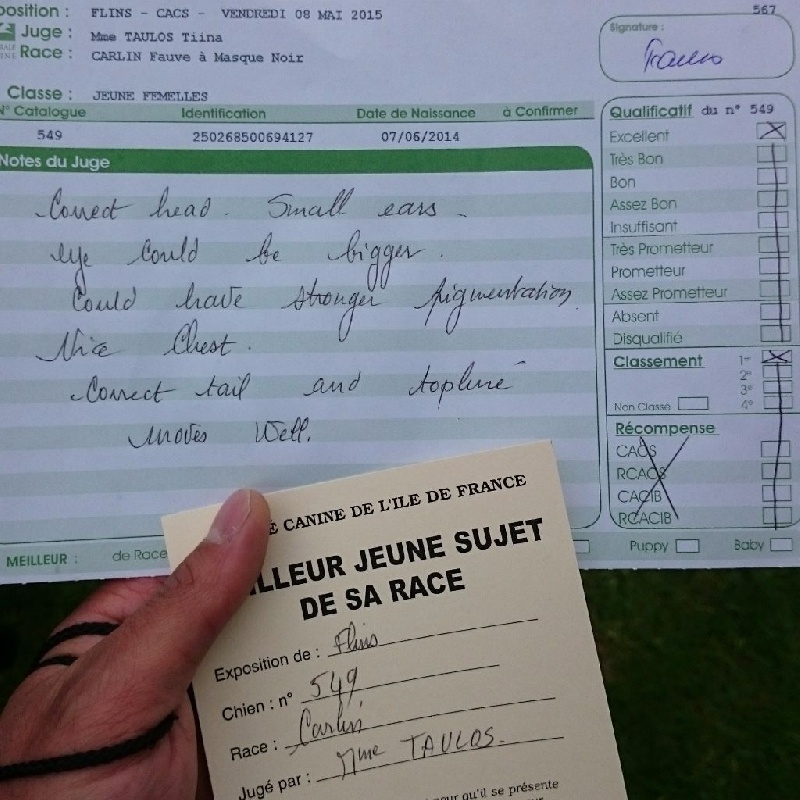 position : FLINS - CACS - VENDREDI 08 MAI 2015
567
Juge : Mme TAULOS Tiina
Race : CARLIN Fauve à Masque Noir
Signature :
Classe : JEUNE FEMELLES
N° Catalogue Identification Date de Naissance à Confirmer
549 250268500694127 07/06/2014
Notes du Juge
Correct head. Small ears.
eye could be bigger.
Could have stronger pigmentation.
Nice Chest.
Correct tail and topline
moves Well.
Qualificatif du n° 549
Excellent
Très Bon
Bon
Assez Bon
Insuffisant
Très Prometteur
Prometteur
Assez Prometteur
Absent
Disqualifié
Classement 1er
2e
3e
Non Classé 4e
Récompense
CACS
RCACS
CACIB
RCACIB
MEILLEUR : de Race Puppy Baby
E CANINE DE L'ILE DE FRANCE
ILLEUR JEUNE SUJET
DE SA RACE
Exposition de : Flins
Chien : n° 549
Race : Carlin
Jugé par : Mme TAULOS.
qu'il se présente